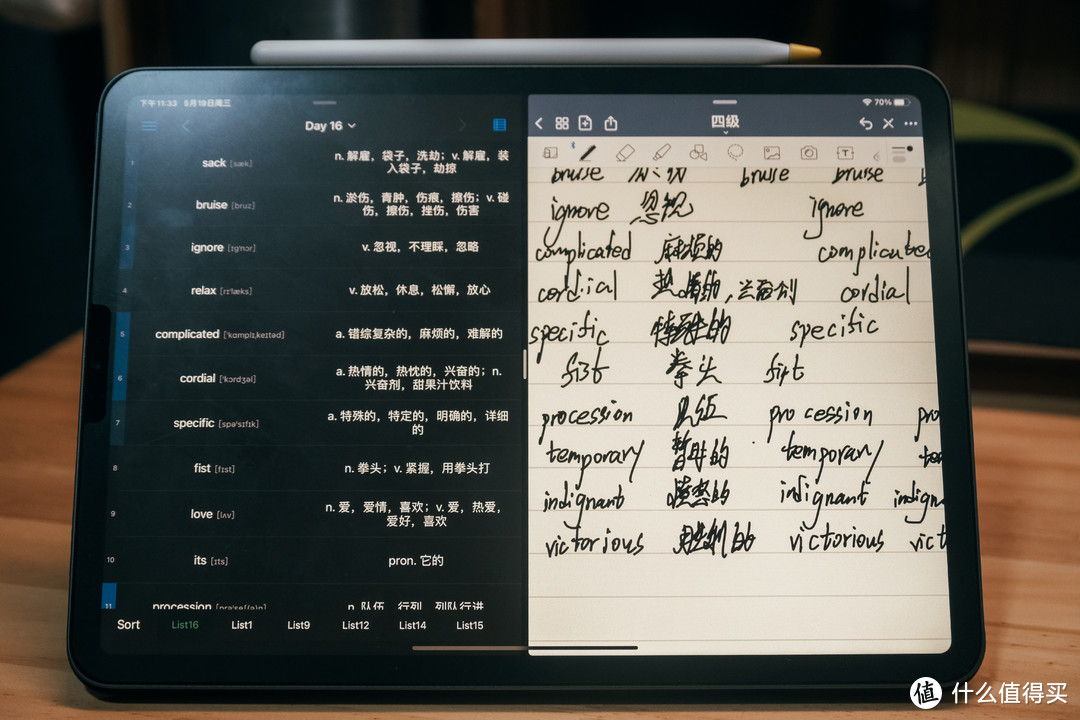 下午11:33 5月19日周三
Day 16
1 sack [sæk] n. 解雇，袋子，洗劫；v. 解雇，装入袋子，劫掠
2 bruise [bruz] n. 淤伤，青肿，伤痕，擦伤；v. 碰伤，擦伤，挫伤，伤害
3 ignore [ɪg'nɔr] v. 忽视，不理睬，忽略
4 relax [rɪ'læks] v. 放松，休息，松懈，放心
5 complicated ['kɑmplɪˌketəd] a. 错综复杂的，麻烦的，难解的
6 cordial ['kɔrdʒəl] a. 热情的，热忱的，兴奋的；n. 兴奋剂，甜果汁饮料
7 specific [spə'sɪfɪk] a. 特殊的，特定的，明确的，详细的
8 fist [fɪst] n. 拳头；v. 紧握，用拳头打
9 love [lʌv] n. 爱，爱情，喜欢；v. 爱，热爱，爱好，喜欢
10 its [ɪts] pron. 它的
11 procession n. 队伍，行列，列队行进
Sort List16 List1 List9 List12 List14 List15
70%
四级
bruise bruise bruise
ignore 忽视 ignore
complicated 麻烦的 complicated
cordial 热情的，兴奋剂 cordial
specific 特殊的 specific
fist 拳头 fist
procession 队伍 procession pro
temporary 暂时的 temporary te
indignant 愤怒的 indignant indign
victorious 胜利的 victorious vict
值 什么值得买